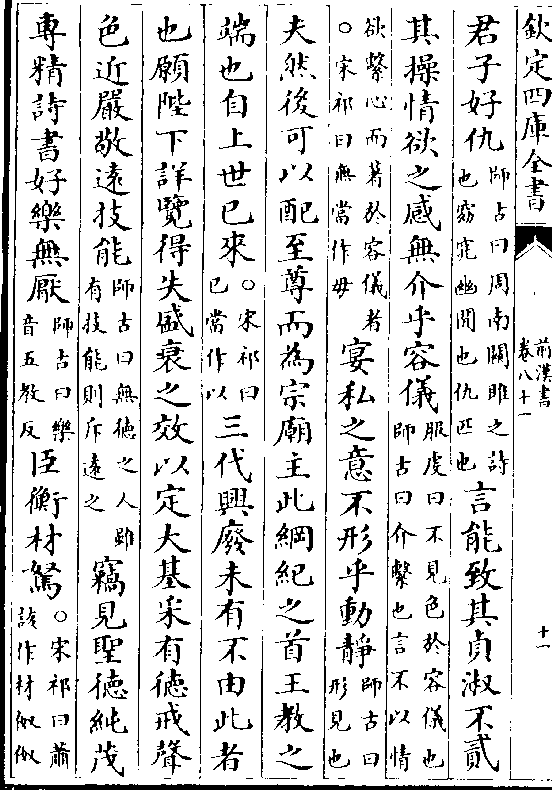 欽定四庫全書
前漢書
卷八十一
十一
君子好仇師古曰周南關雎之詩也窈窕幽閒也仇匹也言能致其貞淑不貳
其操情欲之感無介乎容儀服虔曰不見色於容儀也師古曰介繫也言不以情
欲繫心而著於容儀者○宋祁曰無當作毋宴私之意不形乎動靜師古曰形見也
夫然後可以配至尊而為宗廟主此綱紀之首王教之
端也自上世已來○宋祁曰已當作以三代興廢未有不由此者
也願陛下詳覽得失盛衰之效以定大基采有徳戒聲
色近嚴敬遠技能師古曰無徳之人雖有技能則斥遠之竊見聖徳純茂
專精詩書好樂無厭師古曰樂音五教反臣衡材駑○宋祁曰蕭該作材伮伮